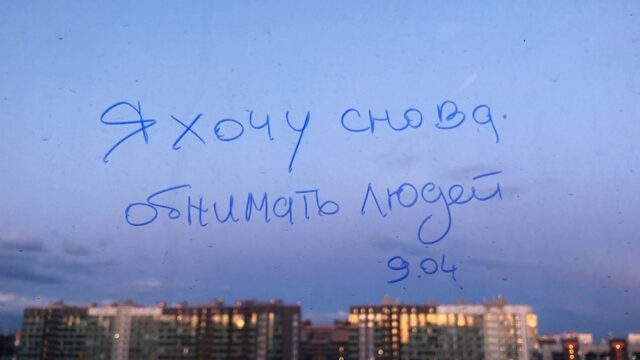 Я хочу снова
обнимать людей
9.04